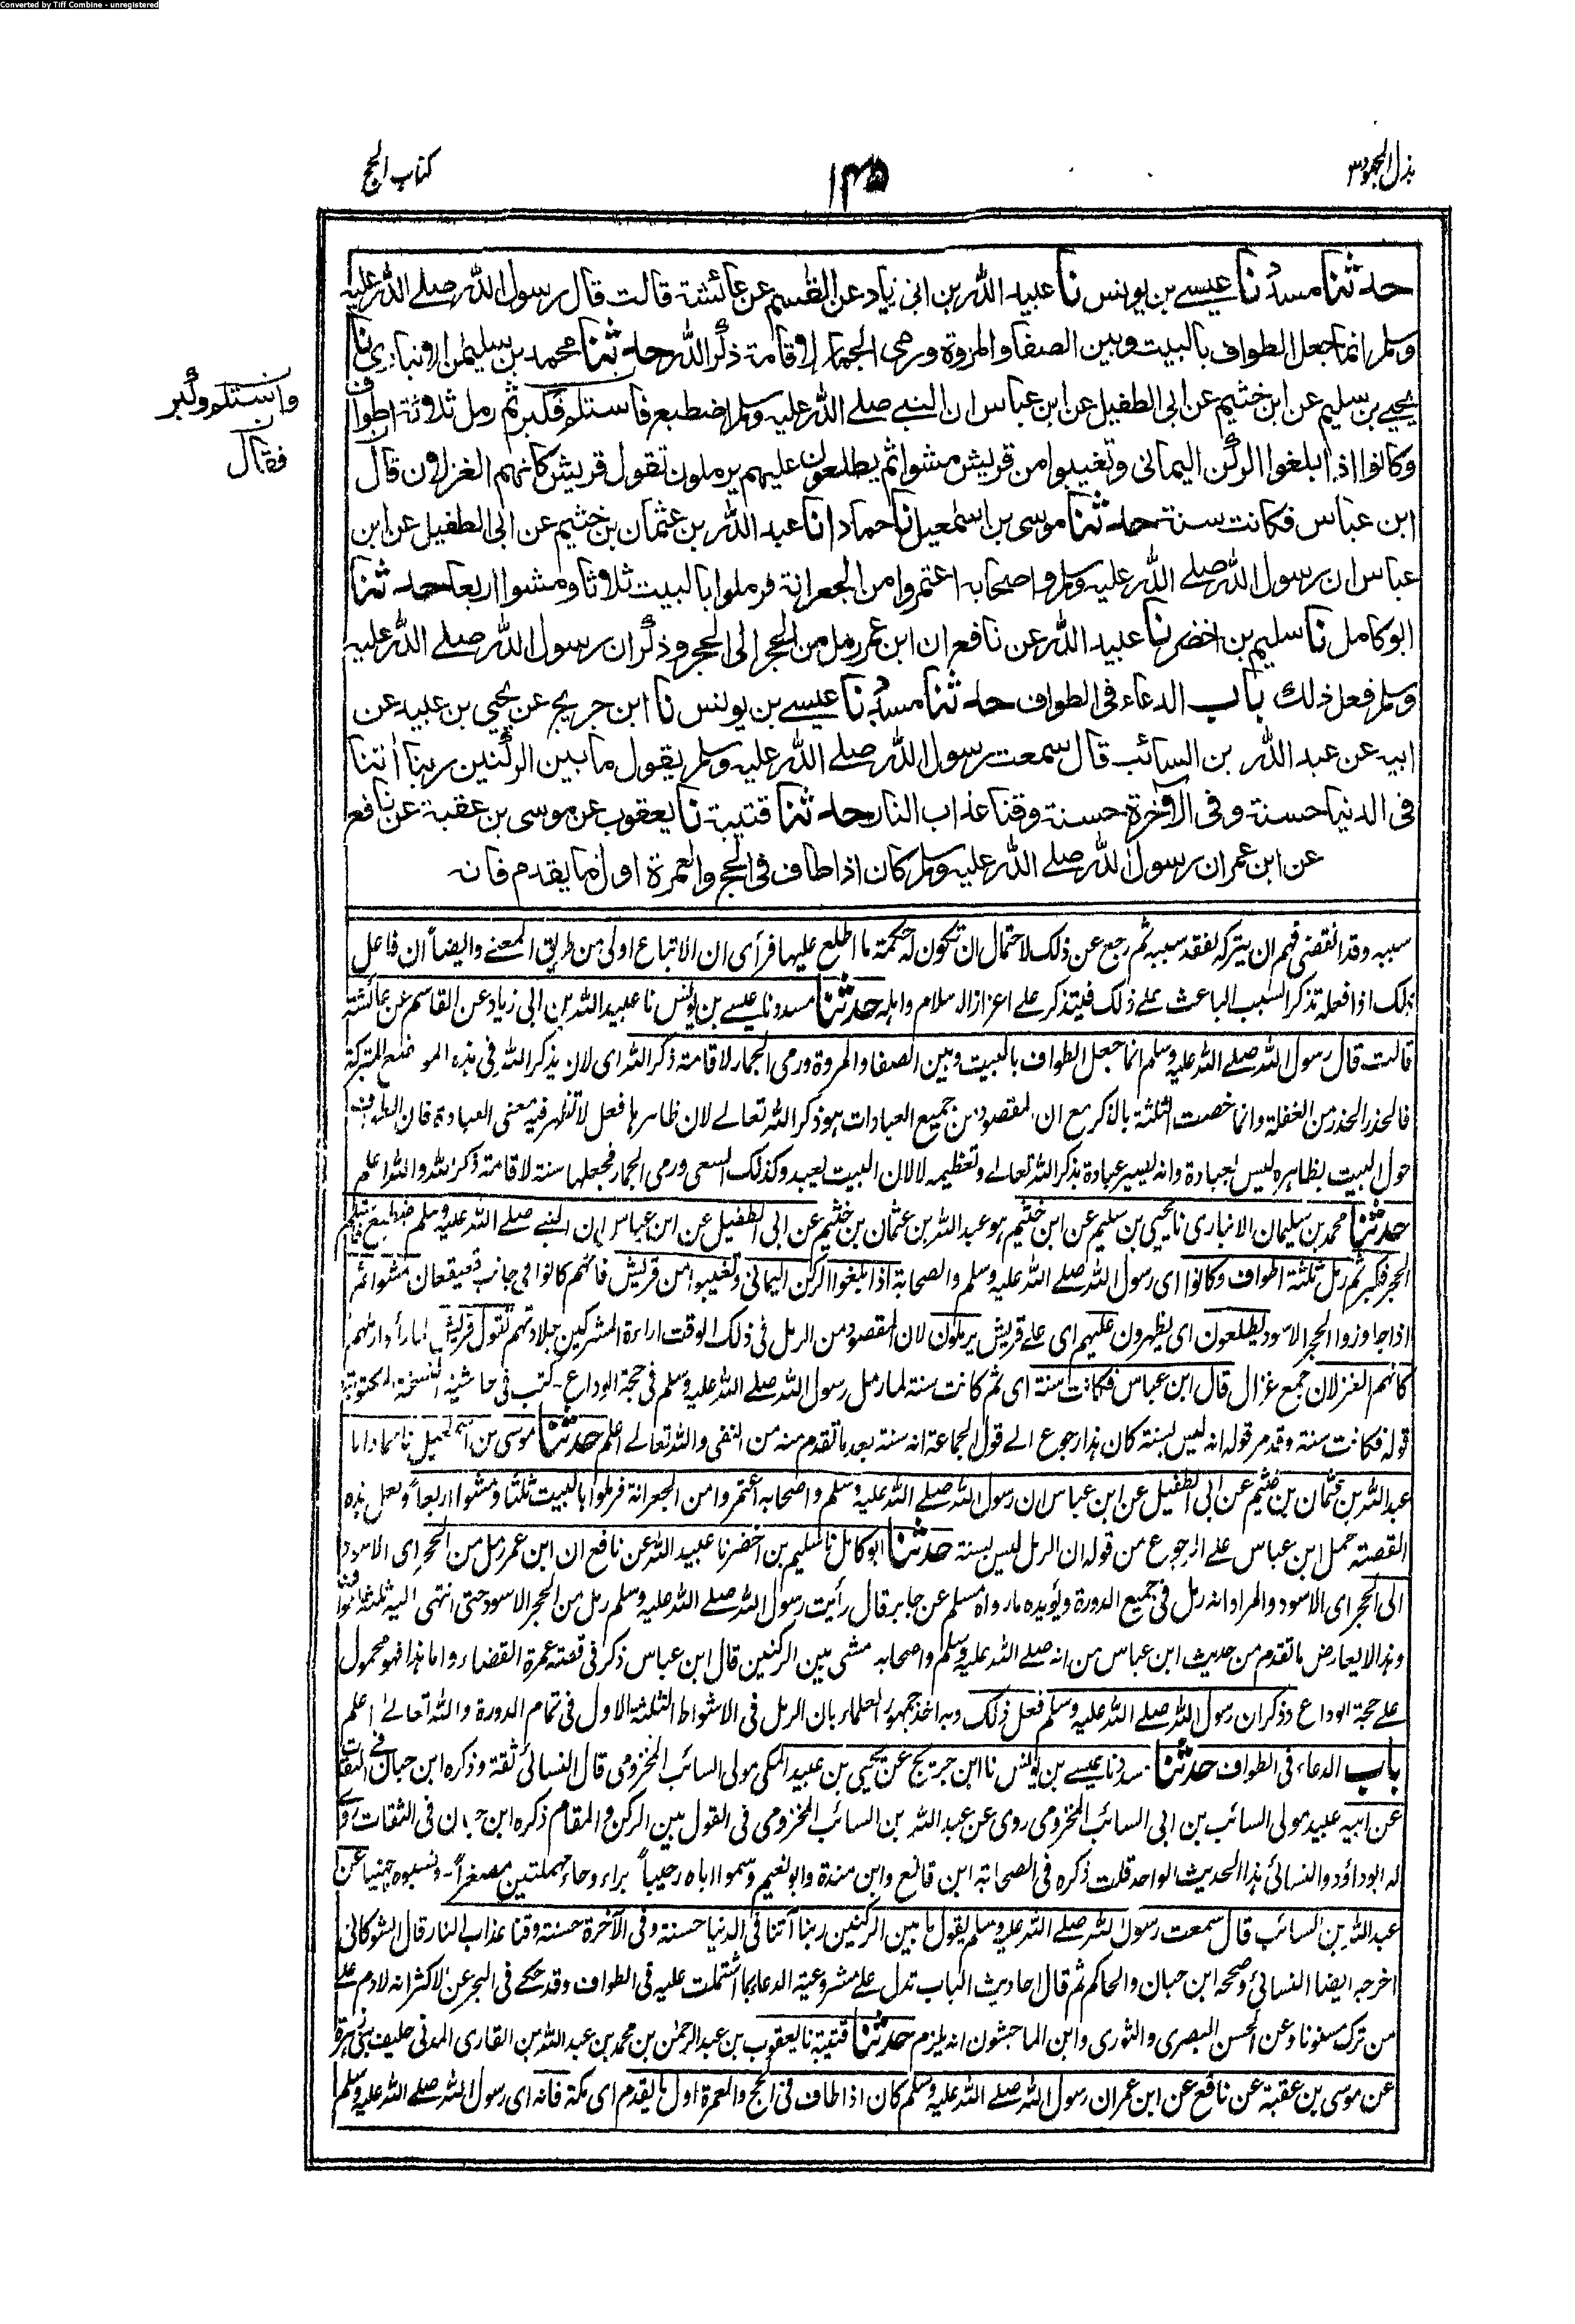 Converted by Tiff Combine - unregistered
بذل المجهود ٣
١٤٥
كتاب الحج
حدثنا مسدد نا عيسى بن يونس نا عبيد الله بن ابى زياد عن القسم عن عائشة قالت قال رسول الله صلى الله عليه
وسلم انما جعل الطواف بالبيت وبين الصفا والمروة ورمى الجمار لاقامة ذكر الله حدثنا محمد بن سليمن الانبارى نا
يحيى بن سليم عن ابن خثيم عن ابى الطفيل عن ابن عباس ان النبى صلى الله عليه وسلم اضطبع فاستلم فكبر ثم رمل ثلاثة اطواف
وكانوا اذا بلغوا الركن اليمانى وتغيبوا من قريش مشوا ثم يطلعون عليهم يرملون تقول قريش كانهم الغزلان قال
ابن عباس فكانت سنة حدثنا موسى بن اسمعيل نا حماد انا عبد الله بن عثمان بن خثيم عن ابى الطفيل عن ابن
عباس ان رسول الله صلى الله عليه وسلم واصحابه اعتمروا من الجعرانة فرملوا بالبيت ثلاثا ومشوا اربعا حدثنا
ابو كامل نا سليم بن اخضر نا عبيد الله عن نافع ان ابن عمر رمل من الحجر الى الحجر وذكر ان رسول الله صلى الله عليه
وسلم فعل ذلك باب الدعاء فى الطواف حدثنا مسدد نا عيسى بن يونس نا ابن جريج عن يحيى بن عبيد عن
ابيه عن عبد الله بن السائب قال سمعت رسول الله صلى الله عليه وسلم يقول ما بين الركنين ربنا أتنا
فى الدنيا حسنة وفى الآخرة حسنة وقنا عذاب النار حدثنا قتيبة نا يعقوب عن موسى بن عقبة عن نافع
عن ابن عمر ان رسول الله صلى الله عليه وسلم كان اذا طاف فى الحج والعمرة اول ما يقدم فانه
واستلم وكبر
فقال
سببه وقد انقضى فهم ان يتركه لفقد سببه ثم رجع عن ذلك لاحتمال ان تكون له حكمة ما اطلع عليها فرأى ان الاتباع اولى من طريق المعنى وايضاً ان فاعل
ذلك اذا فعله تذكر السبب الباعث على ذلك فيتذكر على اعزاز الاسلام واهله حدثنا مسدد نا عيسى بن يونس نا عبيد الله بن ابى زياد عن القاسم عن عائشة
قالت قال رسول الله صلى الله عليه وسلم انما جعل الطواف بالبيت وبين الصفا والمروة ورمى الجمار لاقامة ذكر الله اى لان يذكر الله فى هذه المواضع المتبركة
فالحذر الحذر من الغفلة وانما خصت الثلثة بالذكر مع ان المقصود من جميع العبادات هو ذكر الله تعالى لان ظاهرها فعل لا تظهر فيه معنى العبادة فان الطواف
حول البيت بظاهره ليس بعبادة وانه ليصير عبادة بذكر الله تعالى وتعظيمه لا لان البيت يعبد وكذلك السعى ورمى الجمار فجعلها سنة لاقامة ذكر الله والله اعلم
حدثنا محمد بن سليمان الانبارى نا يحيى بن سليم عن ابن خثيم هو عبد الله بن عثمان بن خثيم عن ابى الطفيل عن ابن عباس ان النبى صلى الله عليه وسلم اضطبع فاستلم
الحجر فكبر ثم رمل ثلثة اطواف وكانوا اى رسول الله صلى الله عليه وسلم والصحابة اذا بلغوا الركن اليمانى وتغيبوا من قريش فانهم كانوا فى جانب قعيقعان مشوا ثم
اذا جاوزوا الحجر الاسود يطلعون اى يظهرون عليهم اى على قريش يرملون لان المقصود من الرمل فى ذلك الوقت اراءة المشركين جلادتهم تقول قريش لما رأوا رملهم
كانهم الغزلان جمع غزال قال ابن عباس فكانت سنة اى ثم كانت سنة لما رمل رسول الله صلى الله عليه وسلم فى حجة الوداع - كتب فى حاشية النسخة المكتوبة
قوله فكانت سنة وقد مر قوله انه ليس بسنة كان هذا رجوع الى قول الجماعة انه سنة بعد ما تقدم منه من النفى والله تعالى اعلم حدثنا موسى بن اسمعيل نا حماد انا
عبد الله بن عثمان بن خثيم عن ابى الطفيل عن ابن عباس ان رسول الله صلى الله عليه وسلم واصحابه اعتمروا من الجعرانة فرملوا بالبيت ثلثا ومشوا اربعاً ولعل هذه
القصة حمل ابن عباس على الرجوع من قوله ان الرمل ليس بسنة حدثنا ابو كامل نا سليم بن اخضر نا عبيد الله عن نافع ان ابن عمر رمل من الحجر اى الاسود
الى الحجر اى الاسود والمراد انه رمل فى جميع الدورة ويؤيده ما رواه مسلم عن جابر قال رأيت رسول الله صلى الله عليه وسلم رمل من الحجر الاسود حتى انتهى اليه ثلثة اطواف
وهذا لا يعارض ما تقدم من حديث ابن عباس من انه صلى الله عليه وسلم واصحابه مشى بين الركنين قال ابن عباس ذكر فى قصة عمرة القضاء واما هذا فهو محمول
على حجة الوداع وذكر ان رسول الله صلى الله عليه وسلم فعل ذلك وبه اخذ جمهور العلماء بان الرمل فى الاشواط الثلثة الاول فى تمام الدورة والله تعالى اعلم
باب الدعاء فى الطواف حدثنا مسدد نا عيسى بن يونس نا ابن جريج عن يحيى بن عبيد المكى مولى السائب المخزومى قال النسائى ثقة وذكره ابن حبان فى الثقات
عن ابيه عبيد مولى السائب بن ابى السائب المخزومى روى عن عبد الله بن السائب المخزومى فى القول بين الركن والمقام ذكره ابن حبان فى الثقات روى
له ابو داؤد والنسائى هذا الحديث الواحد قلت ذكره فى الصحابة ابن قانع وابن مندة وابو نعيم وسموا اباه رحيباً براء وحاء مهملتين مصغراً - ونسبوه جهنيا عن
عبد الله بن السائب قال سمعت رسول الله صلى الله عليه وسلم يقول ما بين الركنين ربنا آتنا فى الدنيا حسنة وفى الآخرة حسنة وقنا عذاب النار قال الشوكانى
اخرجه ايضا النسائى وصححه ابن حبان والحاكم ثم قال احاديث الباب تدل على مشروعية الدعاء بما اشتملت عليه فى الطواف وقد حكى فى البحر عن الاكثر انه لا دم على
من ترك مسنونا وعن الحسن البصرى والثورى وابن الماجشون انه يلزم حدثنا قتيبة نا يعقوب بن عبد الرحمن بن محمد بن عبد الله بن القارى المدنى حليف بنى زهرة
عن موسى بن عقبة عن نافع عن ابن عمر ان رسول الله صلى الله عليه وسلم كان اذا طاف فى الحج والعمرة اول ما يقدم اى مكة فانه اى رسول الله صلى الله عليه وسلم